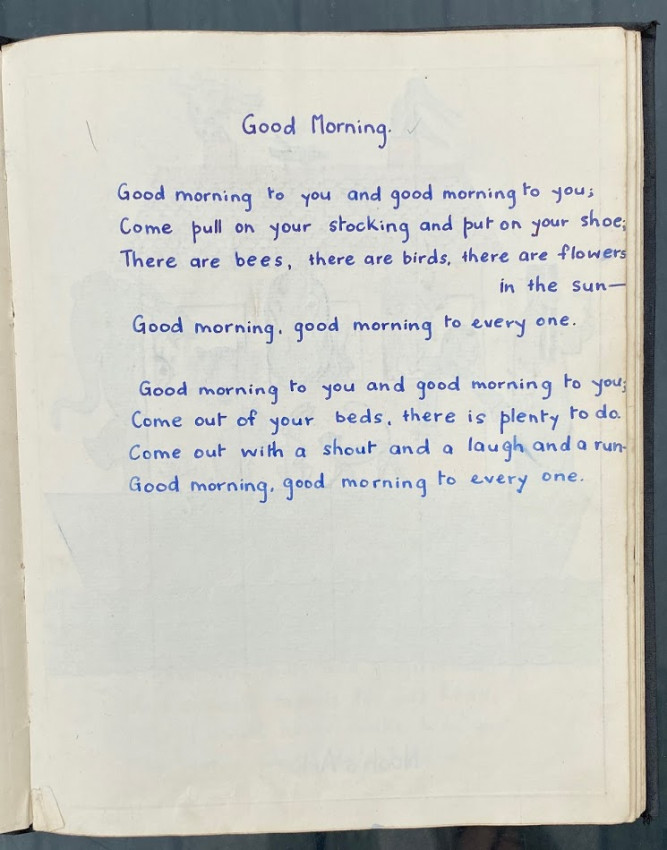 Good Morning.
Good morning to you and good morning to you;
Come pull on your stocking and put on your shoe;
There are bees, there are birds, there are flowers
in the sun—
Good morning, good morning to every one.
Good morning to you and good morning to you;
Come out of your beds, there is plenty to do.
Come out with a shout and a laugh and a run-
Good morning, good morning to every one.